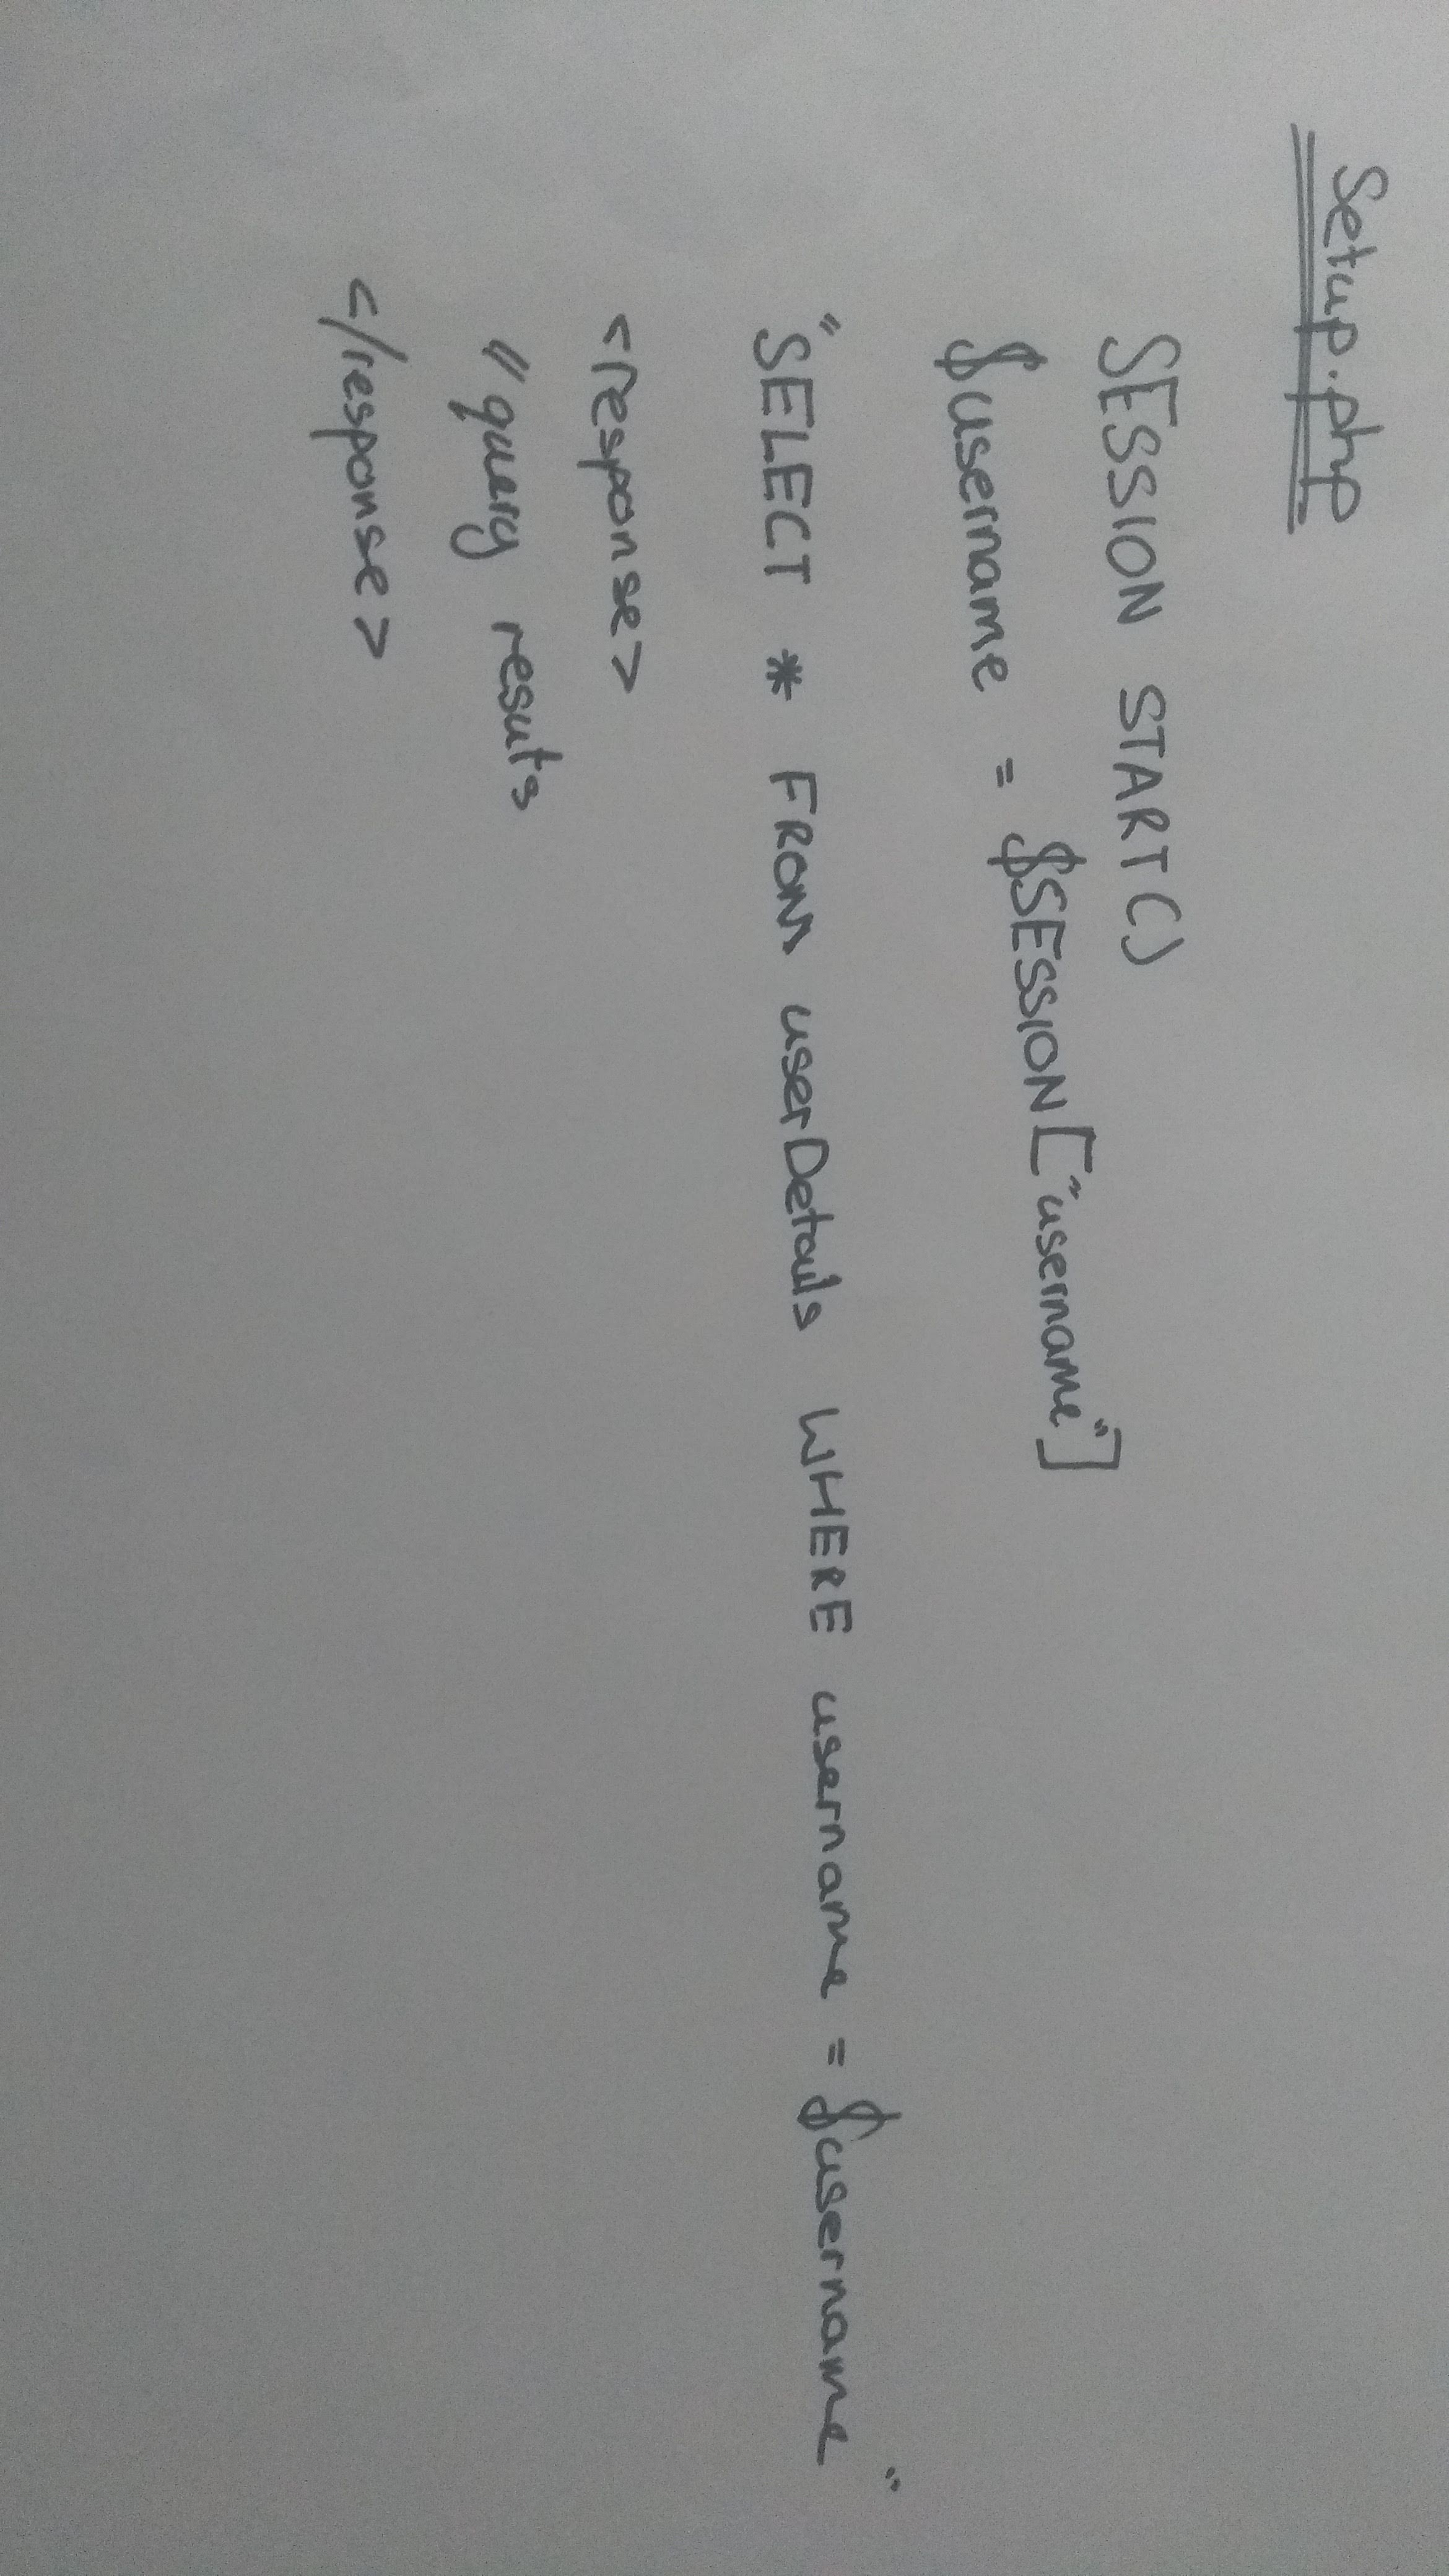 Setup.php
SESSION START()
$username = $SESSION["username"]
"SELECT * FROM userDetails WHERE username = $username"
<response>
// query results
</response>